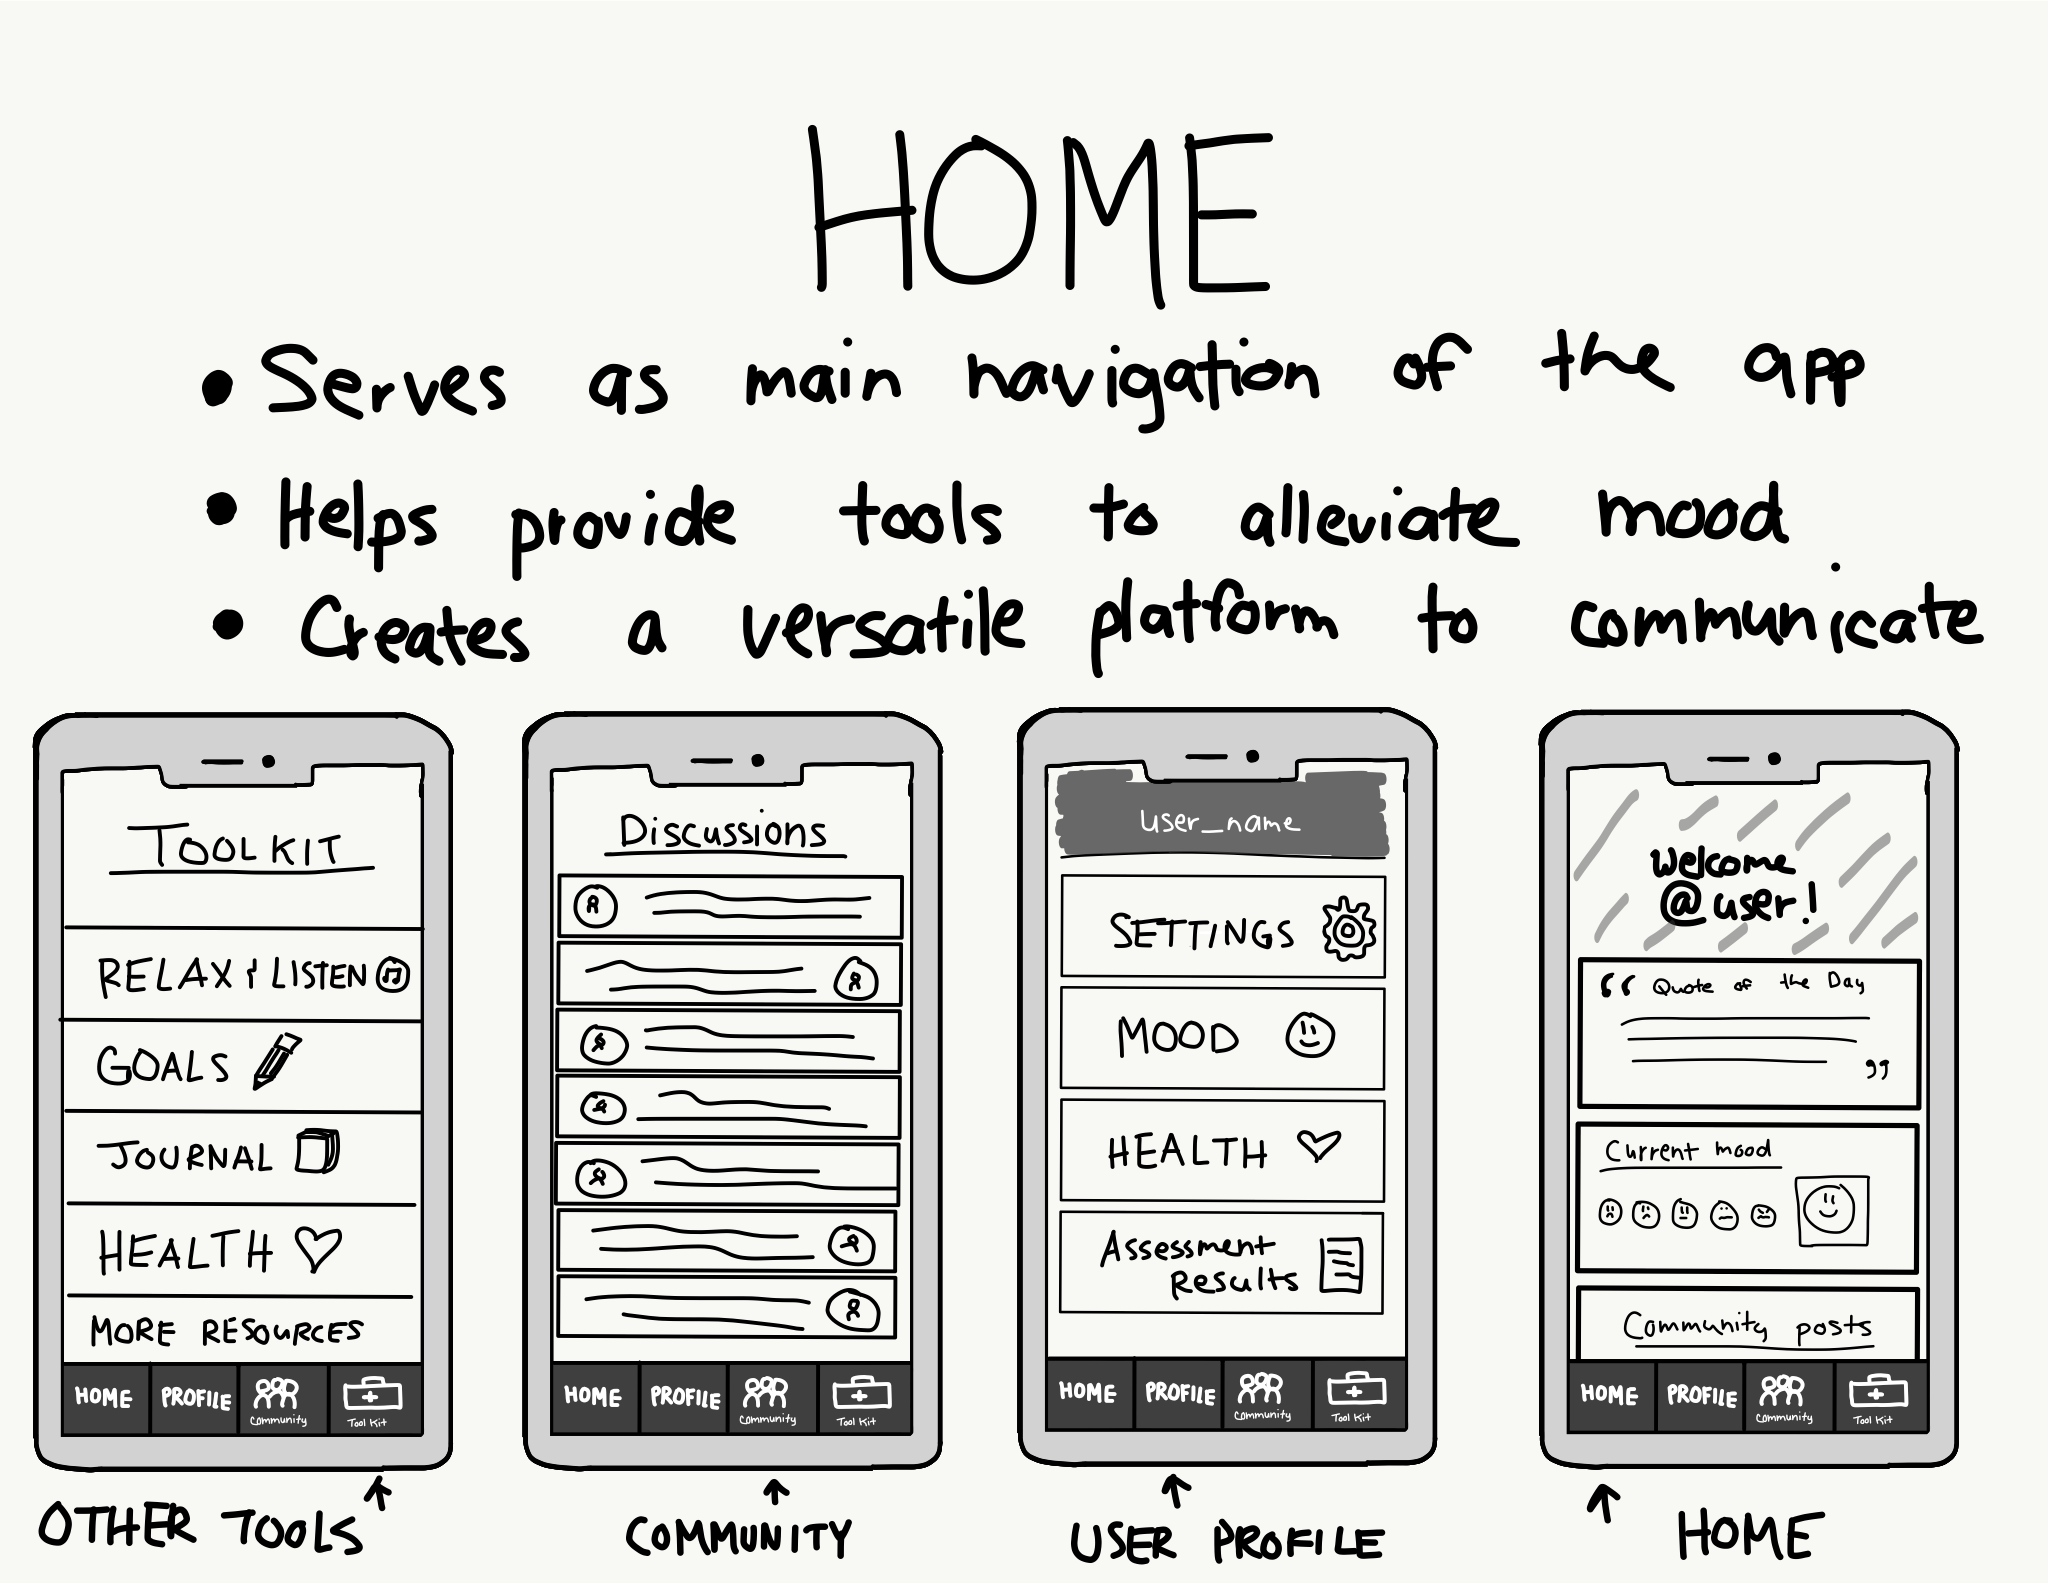 HOME
• Serves as main navigation of the app
• Helps provide tools to alleviate mood
• Creates a versatile platform to communicate
TOOLKIT
RELAX & LISTEN
GOALS
JOURNAL
HEALTH
MORE RESOURCES
HOME PROFILE Community Tool Kit
OTHER TOOLS
Discussions
HOME PROFILE Community Tool Kit
COMMUNITY
user_name
SETTINGS
MOOD
HEALTH
Assessment
Results
HOME PROFILE Community Tool Kit
USER PROFILE
Welcome
@user!
“ Quote of the Day
”
Current mood
Community posts
HOME PROFILE Community Tool Kit
HOME